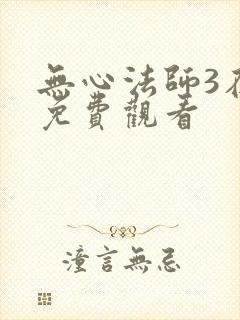 無心法師3在
免費觀看
潼言無忌